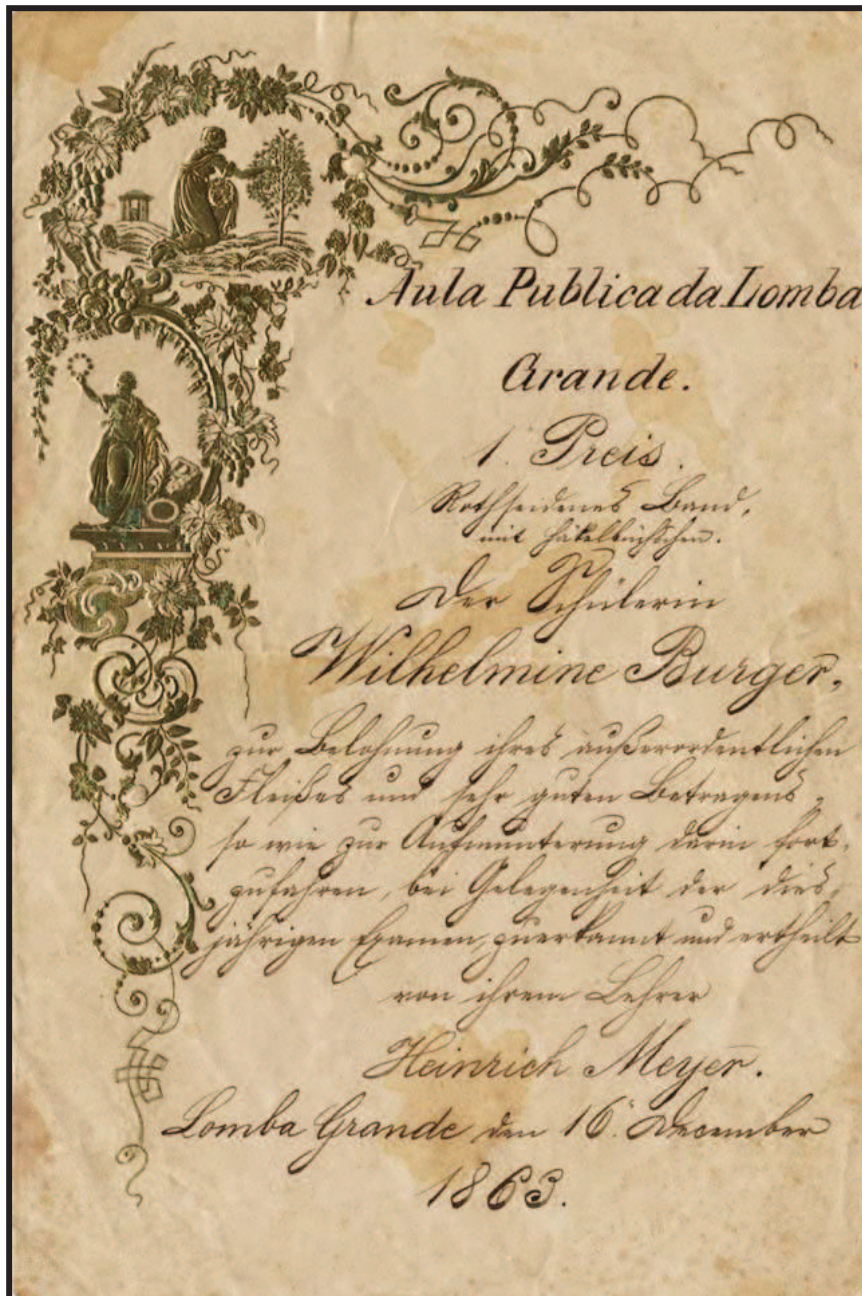 Aula Publica da Lomba
Grande.
1. Preis.
Rothseidenes Band,
mit Häkelbüchschen.
Der Schülerin
Wilhelmine Burger,
zur Belohnung ihres außerordentlichen
Fleißes und sehr guten Betragens,
so wie zur Aufmunterung darin fort-
zufahren, bei Gelegenheit der dies-
jährigen Examen, zuerkannt und ertheilt
von ihrem Lehrer
Heinrich Meyer.
Lomba Grande den 16. December
1863.